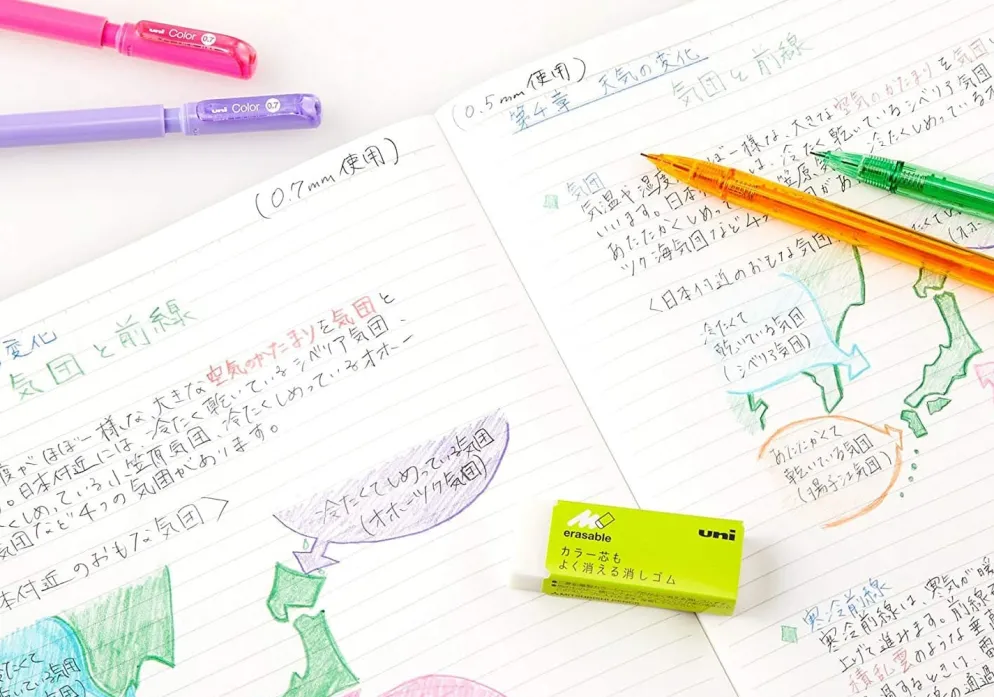 uni Color 0.7
uni Color 0.7
(0.7mm 使用)
変化
気団 と前線
度がほぼ一様な、大きな空気のかたまりを気団と
日本付近には、冷たく乾いているシベリア気団、
しめっている小笠原気団、冷たくしめっているオホー
気団など4つの気団があります。
本付近のおもな気団〉
冷たくてしめっている気団
(オホーツク気団)
冷たくて
いている気団
(0.5mm 使用)
第4章 天気の変化
気団と前線
気団
気温や湿度
ぼ一様な、大きな空気のかたまりを気団
いいます。日本
は、冷たく乾いているシベリア気団
あたたかくしめっ
笠原気
冷たくしめっているオ
ツク海気団など4
があ
〈日本付近のおもな気団
冷たくて
乾いている気団
(シベリア気団)
あたたかくて
乾いている気団
(揚子江気団)
erasable
uni
カラー芯も
よく消える消しゴム
寒冷前線
寒冷前線は、寒気が暖
上げて進みます。前線
積乱雲のような垂直
するとき、雷
の通過